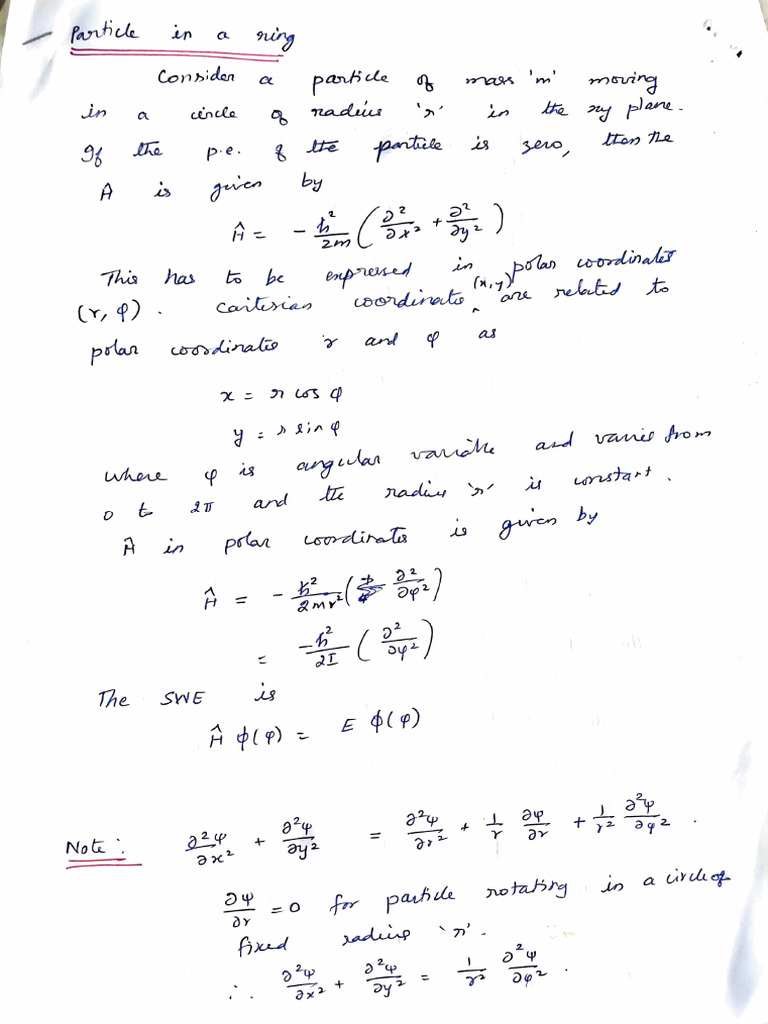 Particle in a ring
Consider a particle of mass 'm' moving
in a circle of radius 'r' in the xy plane.
If the p.e. of the particle is zero, then the
Ĥ is given by
Ĥ = - ħ²/2m (∂²/∂x² + ∂²/∂y²)
This has to be expressed in polar coordinates
(r, φ). Cartesian coordinates (x,y) are related to
polar coordinates r and φ as
x = r cos φ
y = r sin φ
where φ is angular variable and varies from
0 to 2π and the radius 'r' is constant.
Ĥ in polar coordinates is given by
Ĥ = - ħ²/2mr² (∂²/∂φ²)
= -ħ²/2I (∂²/∂φ²)
The SWE is
Ĥ ϕ(φ) = E ϕ(φ)
Note: ∂²ψ/∂x² + ∂²ψ/∂y² = ∂²ψ/∂r² + 1/r ∂ψ/∂r + 1/r² ∂²ψ/∂φ².
∂ψ/∂r = 0 for particle rotating in a circle of
fixed radius 'r'.
∴ ∂²ψ/∂x² + ∂²ψ/∂y² = 1/r² ∂²ψ/∂φ².